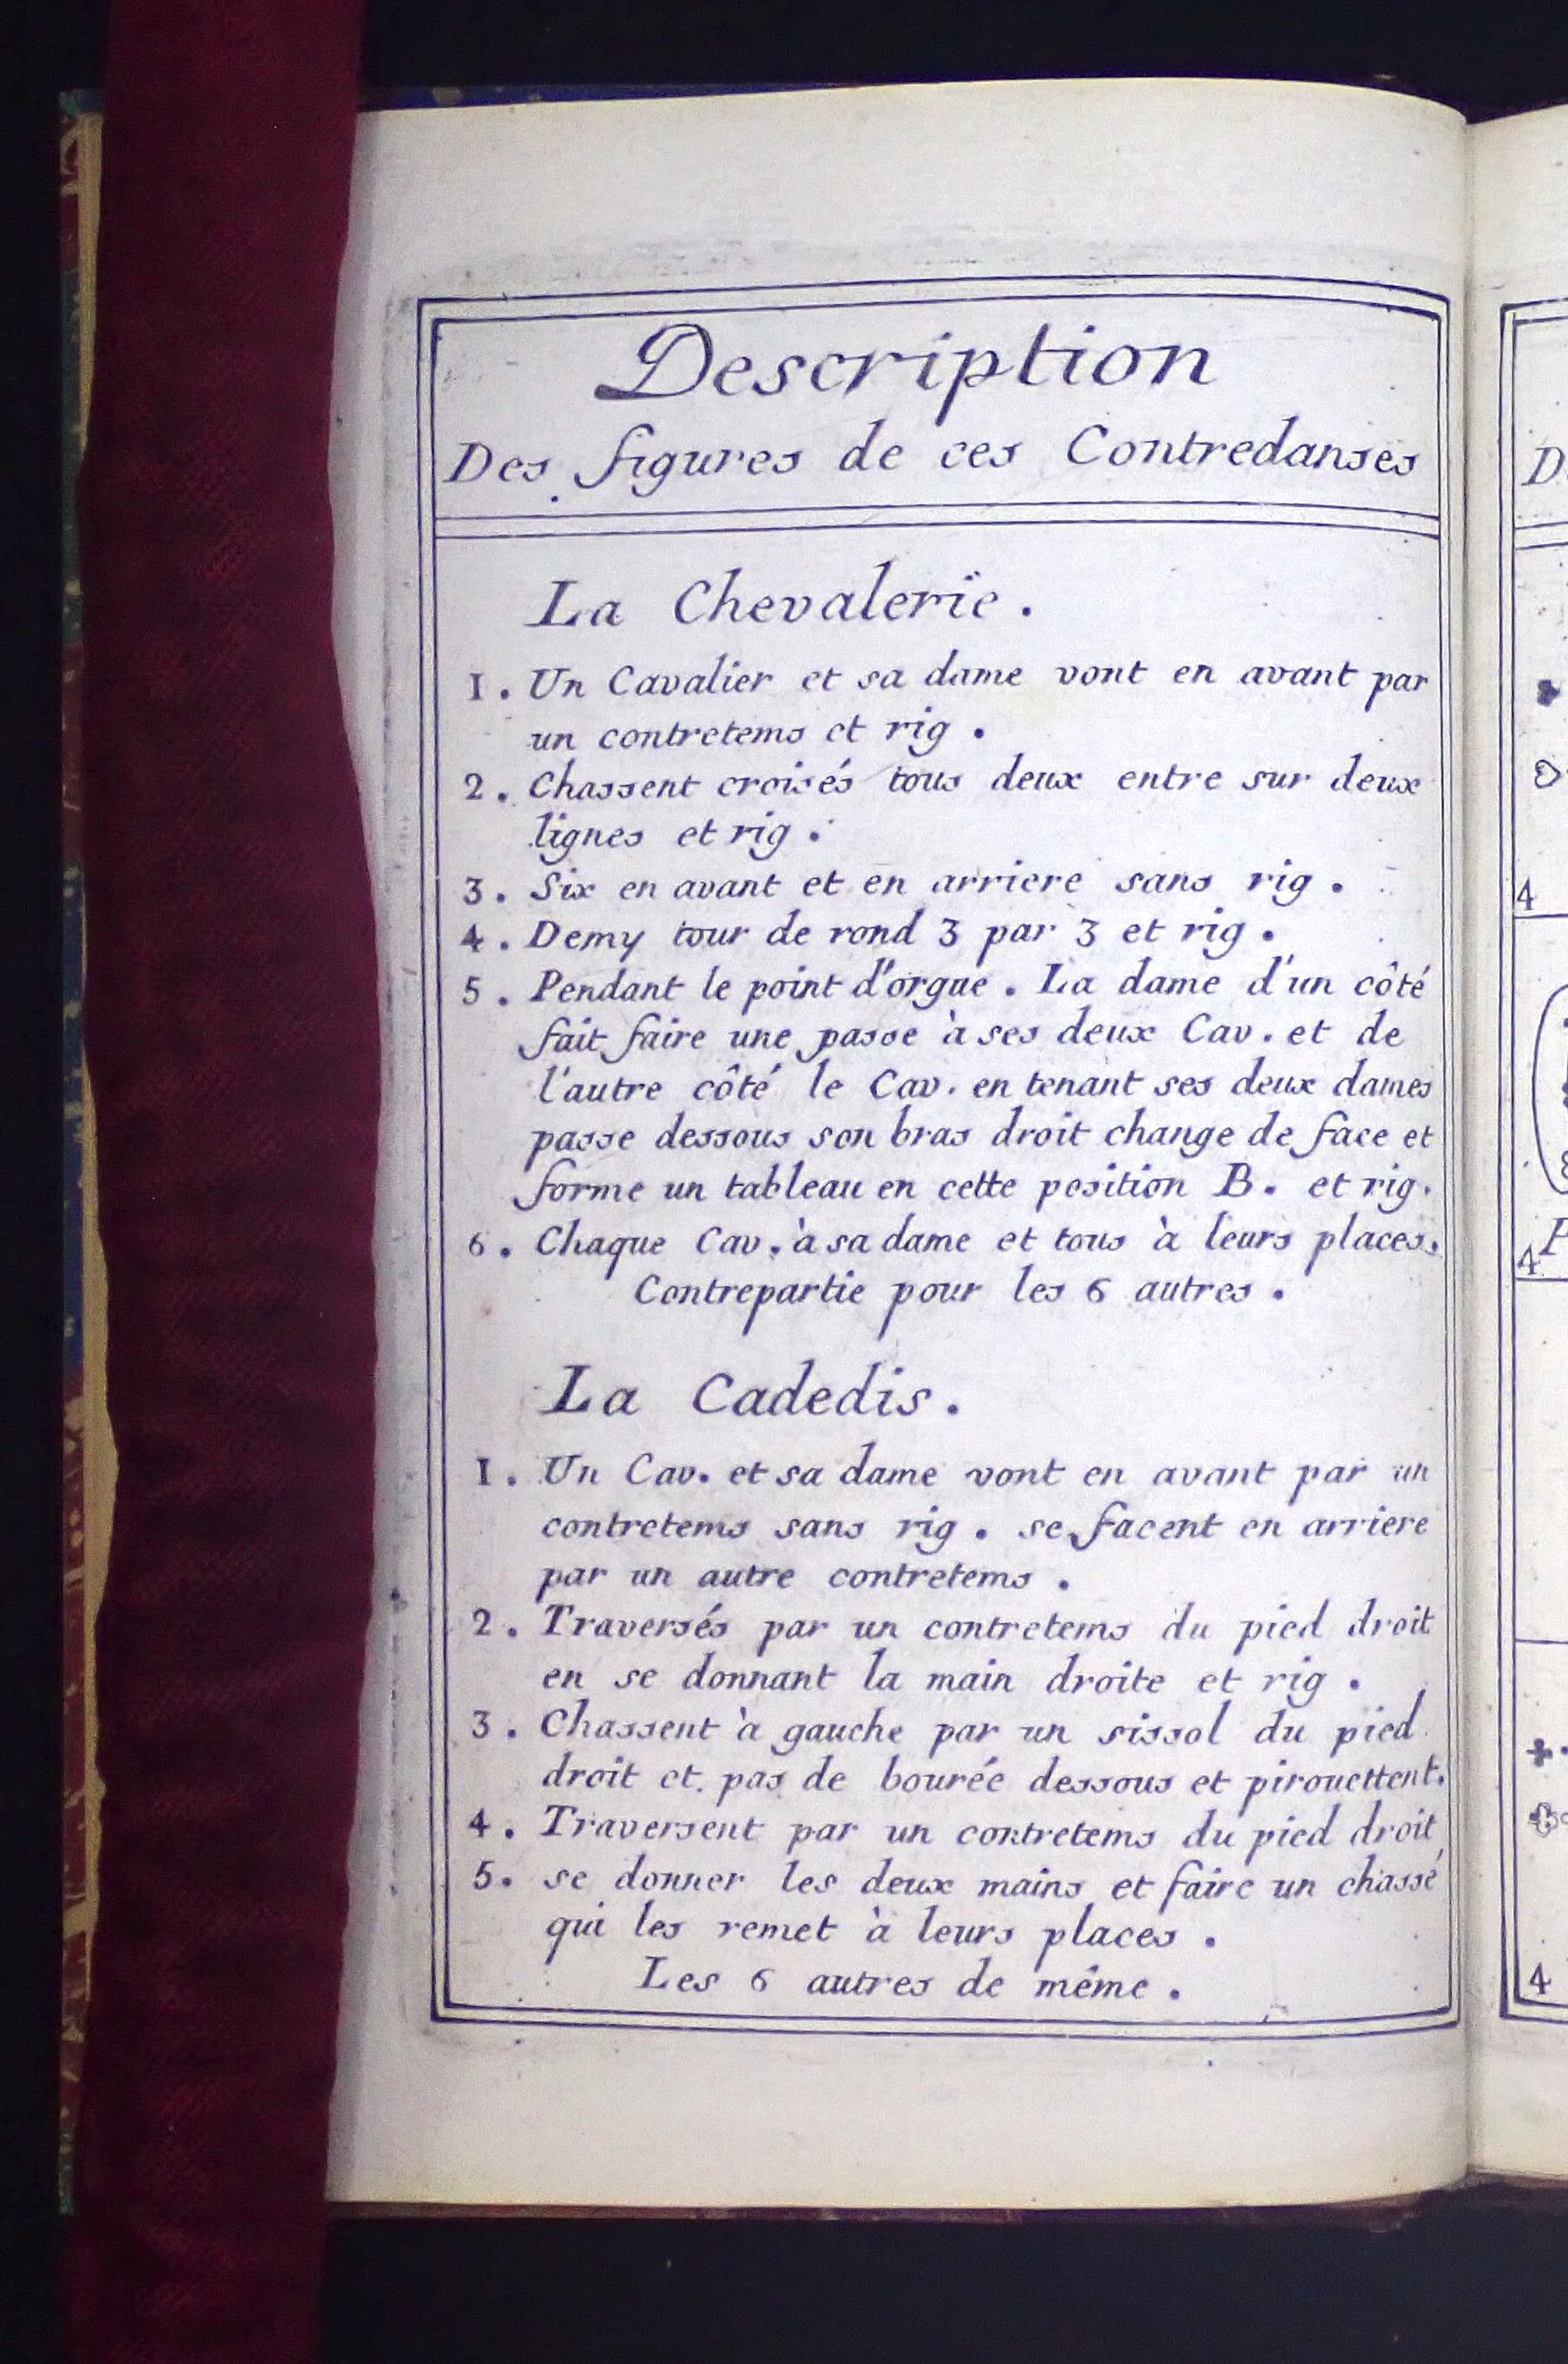 Description
Des figures de ces Contredanses
La Chevalerïe .
1 . Un Cavalier et sa dame vont en avant par
un contretems et rig .
2 . Chassent croisés tous deux entre sur deux
lignes et rig .
3 . Six en avant et en arriere sans rig .
4 . Demy tour de rond 3 par 3 et rig .
5 . Pendant le point d'orgue . La dame d'un côté
fait faire une passe à ses deux Cav . et de
l'autre côté le Cav . en tenant ses deux dames
passe dessous son bras droit change de face et
forme un tableau en cette position B . et rig .
6 . Chaque Cav . à sa dame et tous à leurs places .
Contrepartie pour les 6 autres .
La Cadedis .
1 . Un Cav . et sa dame vont en avant par un
contretems sans rig . se facent en arriere
par un autre contretems .
2 . Traversés par un contretems du pied droit
en se donnant la main droite et rig .
3 . Chassent à gauche par un sissol du pied
droit et pas de bourée dessous et pirouettent .
4 . Traversent par un contretems du pied droit
5 . se donner les deux mains et faire un chassé
qui les remet à leurs places .
Les 6 autres de même .
D
4
P
4
4